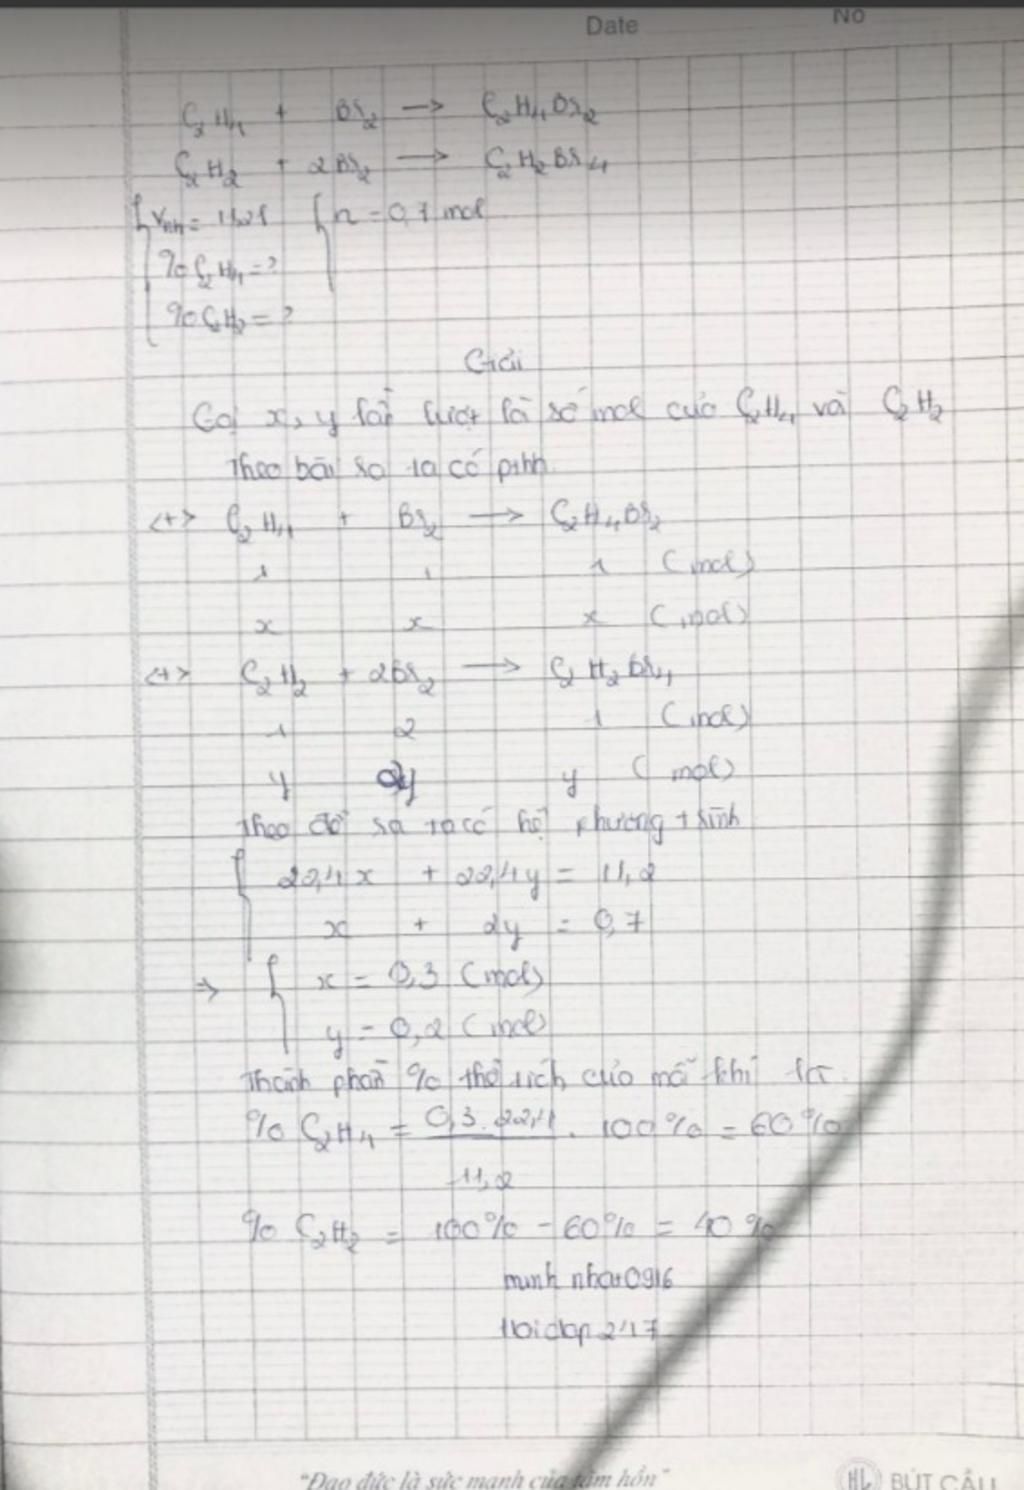 Date No
C₂H₄ + Br₂ → C₂H₄Br₂
C₂H₂ + 2Br₂ → C₂H₂Br₄
n = 0,7 mol
%C₂H₄ = ?
%C₂H₂ = ?
Giải
Gọi x, y lần lượt là số mol của C₂H₄ và C₂H₂
Theo bài ra ta có pthh
<+> C₂H₄ + Br₂ → C₂H₄Br₂
1 1 1 (mol)
x x x (mol)
<+> C₂H₂ + 2Br₂ → C₂H₂Br₄
1 2 1 (mol)
y 2y y (mol)
Theo đề ra ta có hệ phương trình
22,4x + 22,4y = 11,2
x + 2y = 0,7
⇒ x = 0,3 (mol)
y = 0,2 (mol)
Thành phần % thể tích của mỗi khí là
% C₂H₄ = 0,3.22,4 . 100% = 60%
11,2
% C₂H₂ = 100% - 60% = 40%
0916
hoidap247
"Đạo đức là sức mạnh của tâm hồn" HL BÚT CẦU